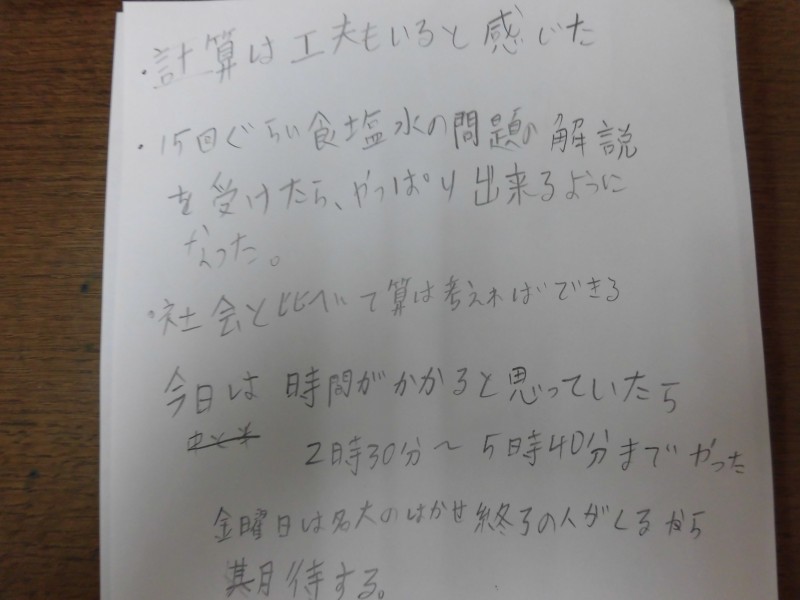 ・計算は工夫もいると感じた
・15回ぐらい食塩水の問題の解説
を受けたら、やっぱり出来るように
なった。
・社会と比べて算は考えればできる
今日は時間がかかると思っていたら
2時30分～5時40分までやった
金曜日は名大のはかせ終了の人がくるから
期待する。